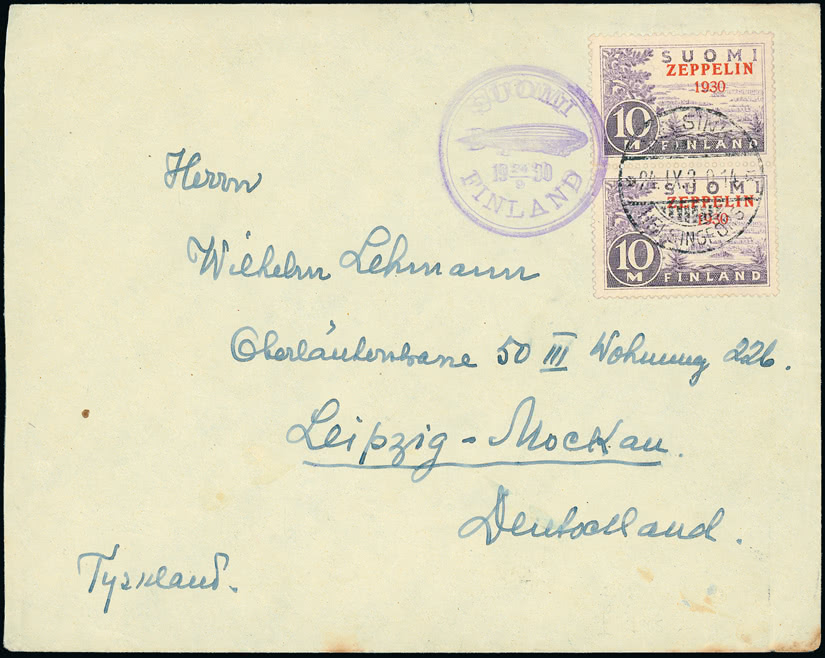 SUOMI
ZEPPELIN
1930
10
M
FINLAND
SUOMI
ZEPPELIN
1930
10
M
FINLAND
SUOMI
19 24 30
9
FINLAND
24.IX.3 0.14
HELSINGFORS
Herrn
Wilhelm Lehmann
50 III Wohnung 226.
Leipzig - Mockau.
Deutschland.
Tyskland.